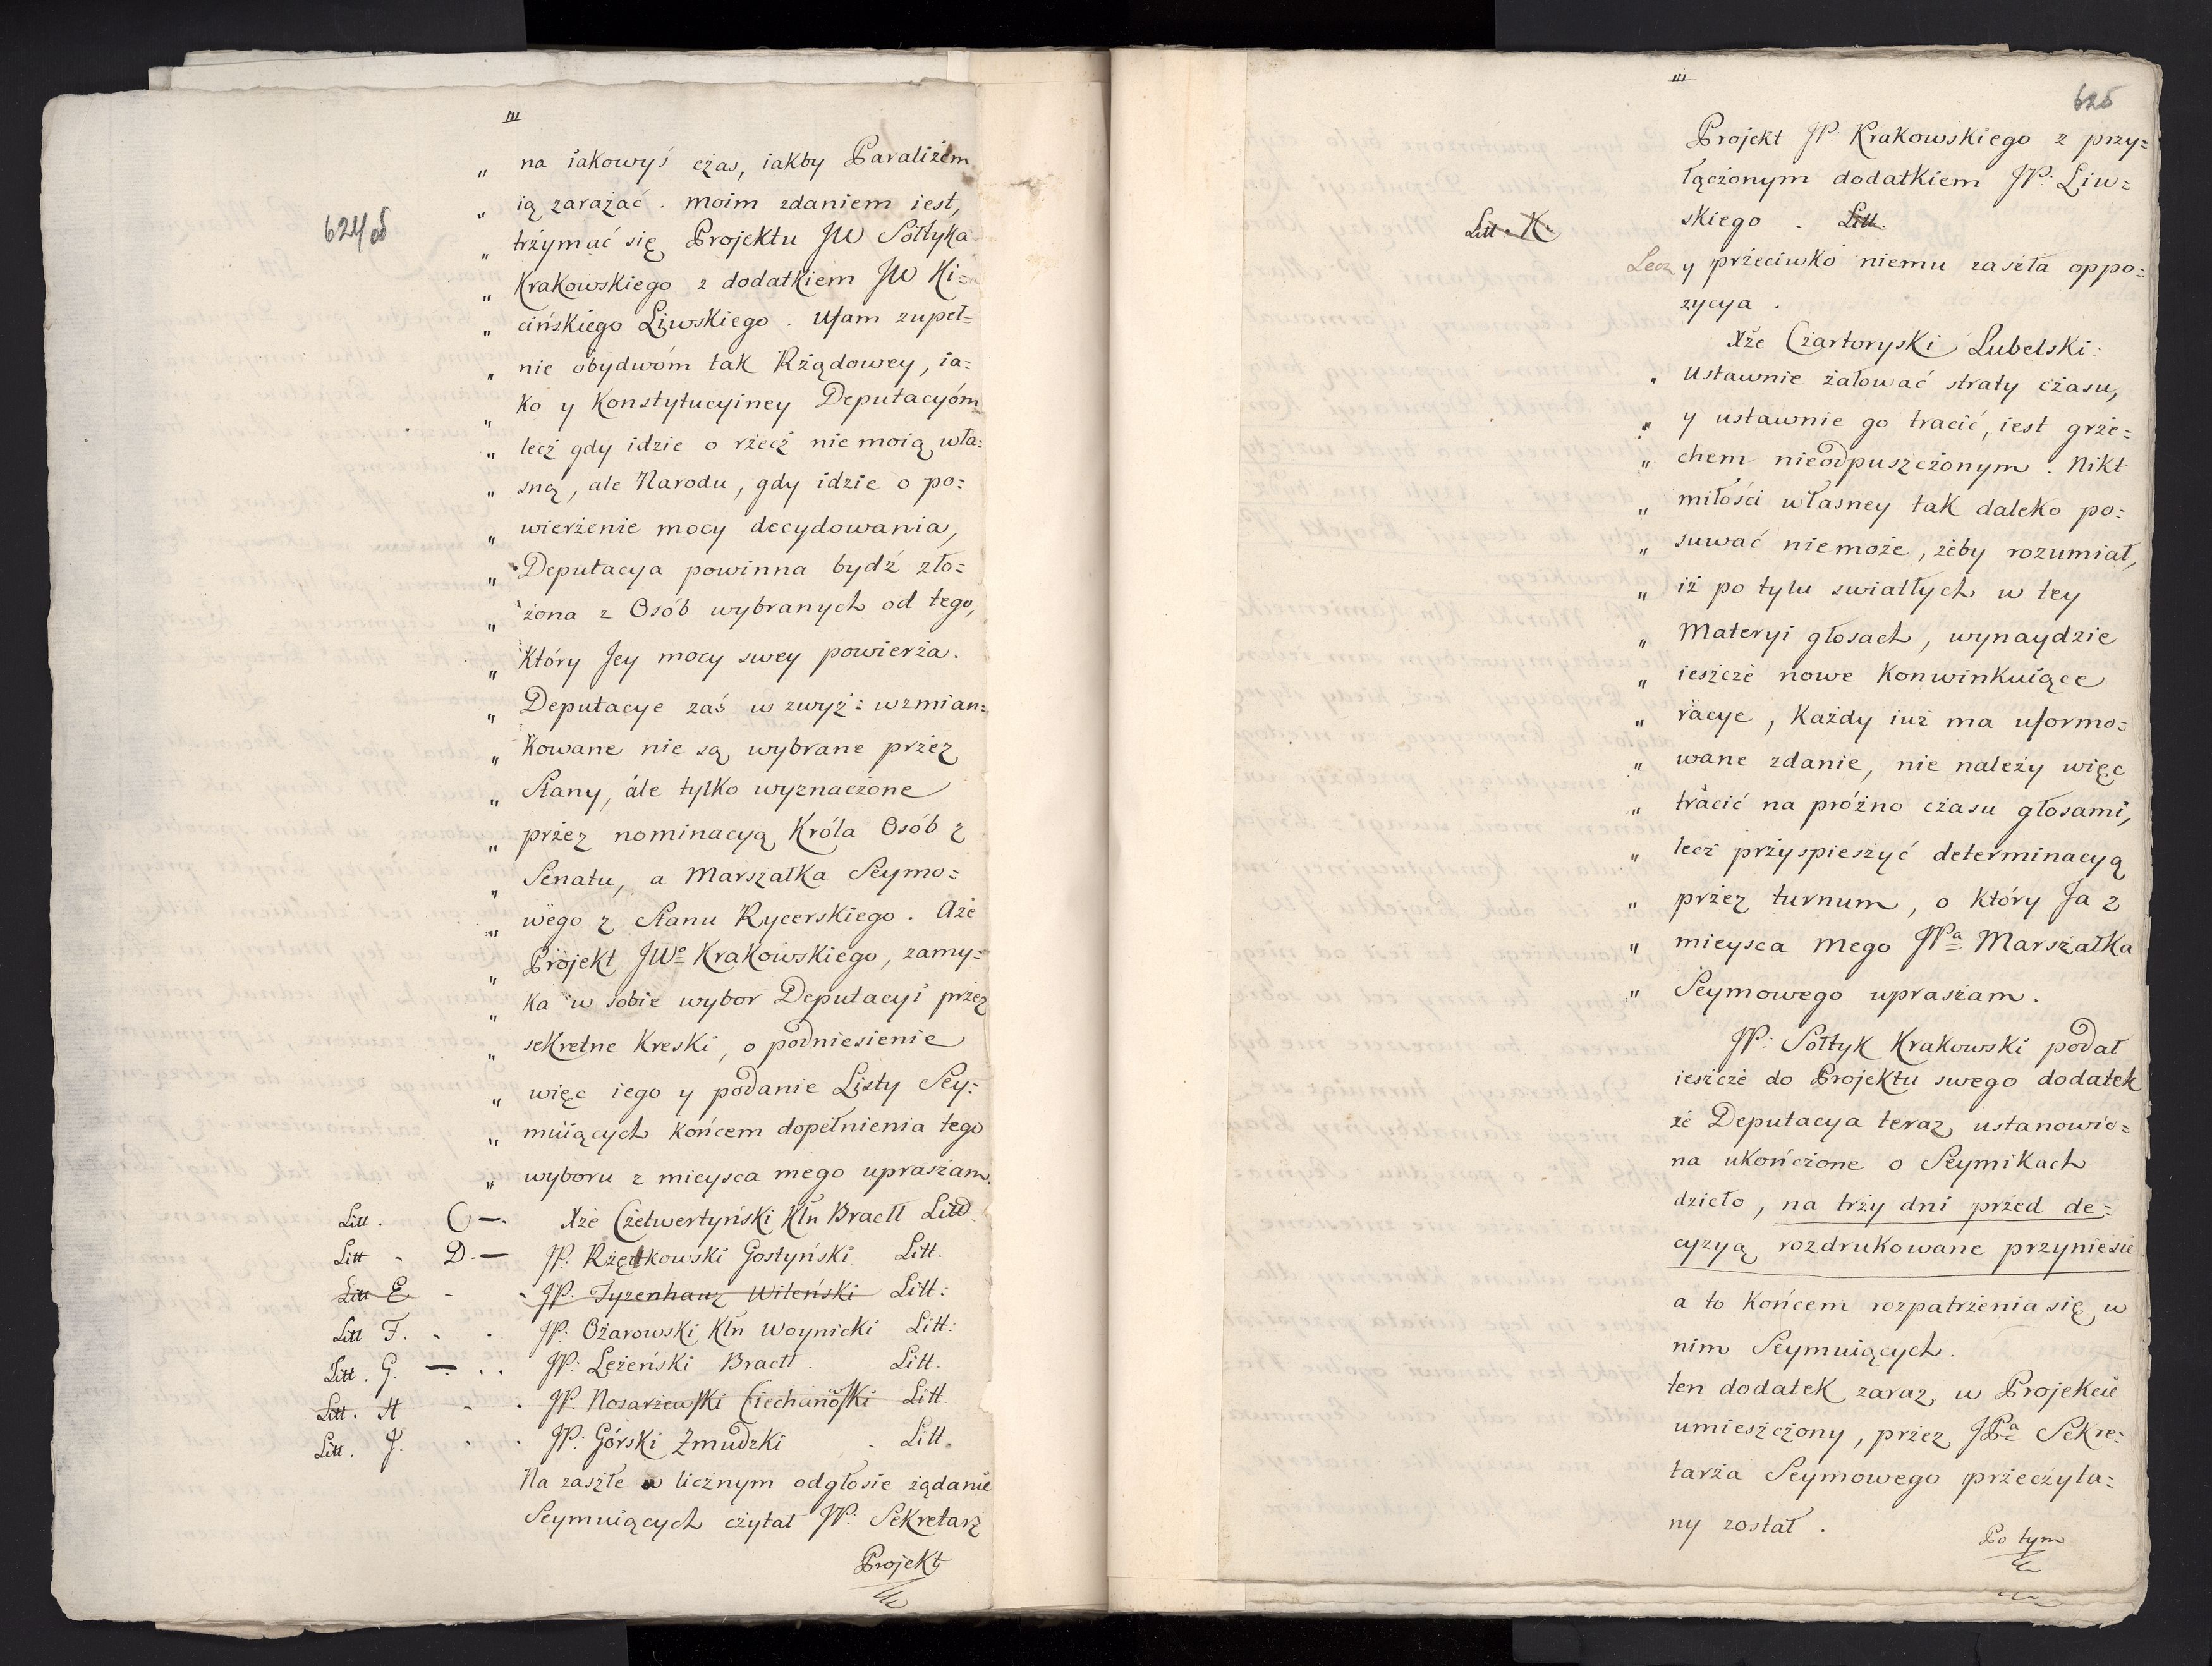 III
624 об
„ na iakowyś czas, iakby Paraliżem
„ ią zarażać. moim zdaniem iest,
„ trzymać się Projektu JW Sołtyka
„ Krakowskiego z dodatkiem JW Ki=
„ cińskiego Liwskiego. Ufam zupeł=
„ nie obydwóm tak Rządowey, ia=
„ ko y Konstytucyiney Deputacyóm
„ lecz gdy idzie o rzecz nie moią wła=
„ sną, ale Narodu, gdy idzie o po=
„ wierzenie mocy decydowania,
„ Deputacya powinna bydź zło=
„ żona z Osób wybranych od tego,
„ który Jey mocy swey powierza.
„ Deputacye zaś w zwyż: wzmian=
„ kowane nie są wybrane przez
„ Stany, ále tylko wyznaczone
„ przez nominacyą Króla Osób z
„ Senatu, a Marszałka Seymo=
„ wego z Stanu Rycerskiego. Aże
„ Projekt JWo Krakowskiego, zamy=
„ ka w sobie wybor Deputacyi przez
„ sekretne kreski, o podniesienie
„ więc iego y podanie Listy Sey=
„ muiących końcem dopełnienia tego
„ wyboru z mieysca mego upraszam.
Litt. C —. Xże Czetwertyński Kln Bractt Litt
Litt - D. — JP: Rzętkowski Gostyński Litt.
Litt E - - JP. Tyzenhauz Wileński Litt:
Litt F. - . JP: Ożarowski Kln Woynicki Litt:
Litt. G. — . . JP: Leżeński Bractt. Litt.
Litt. H - . JP. Nosarzewski Ciechanoski Litt.
Litt. J. . . JP: Górski Żmudzki - Litt.
Na zaszłe w licznym odgłosie żądanie
Seymuiących czytał JP: Sekretarz
Projekt
III
625
Projekt JP: Krakowskiego z przy=
łączonym dodatkiem JP: Liw=
Litt. K. skiego . Litt.
Lecz y przeciwko niemu zaszła oppo=
zycya .
Xże Czartoryski Lubelski:
„ Ustawnie żałować straty czasu,
„ y ustawnie go tracić, iest grze=
„ chem nieodpuszczonym. Nikt
„ miłości własney tak daleko po=
„ suwać niemoże, żeby rozumiał,
„ iż po tylu swiatłych w tey
„ Materyi głosach, wynaydzie
„ ieszcze nowe konwinkuiące
„ racye, każdy iuż ma uformo=
„ wane zdanie, nie należy więc
„ trácić na próżno czasu głosami,
„ lecz przyspieszyć determinacyą
„ przez turnum, o który Ja z
„ mieysca mego JPa Marszałka
„ Seymowego upraszam.
JP: Sołtyk Krakowski podał
ieszcze do Projektu swego dodatek
że Deputacya teraz ustanowio=
na ukończone o Seymikach
dzieło, na trzy dni przed de=
cyzyą rozdrukowane przyniesie
a to końcem rozpatrzenia się w
nim Seymuiących.
ten dodatek zaraz w Projekcie
umieszczony, przez JPa Sekre=
tarza Seymowego przeczyta=
ny został .
Po tym